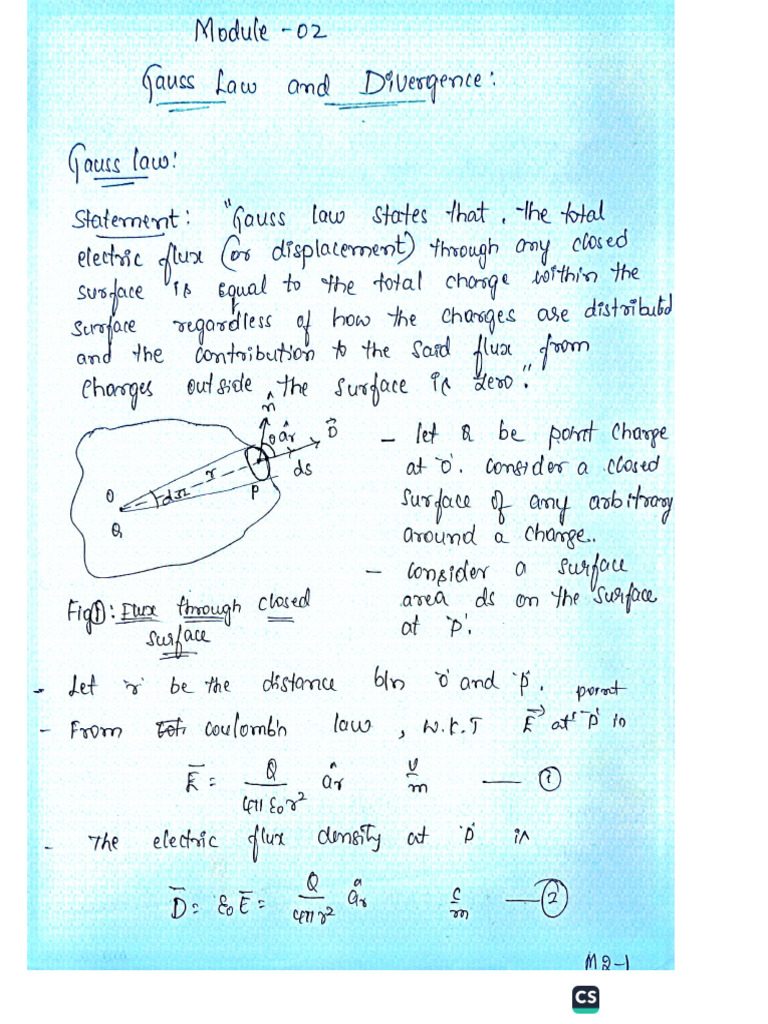 Module -02
Gauss Law and Divergence:
Gauss law:
Statement: "Gauss law states that, the total
electric flux (or displacement) through any closed
surface is equal to the total charge within the
surface regardless of how the charges are distributd
and the contribution to the said flux from
charges outside the surface is zero."
n̂
θ âr D⃗
r ds
O dΩ P
Q
Fig①: Flux through closed
surface
- let Q be point charge
at 'O'. consider a closed
surface of any arbitrary
around a charge.
- consider a surface
area ds on the surface
at 'P'.
- Let 'r' be the distance b/n 'O' and 'P'. point
- From coulomb's law, W.K.T E⃗ at 'P' is
E̅ = Q/4πε₀r² âr V/m — ①
- The electric flux density at 'P' is
D̅ = ε₀E̅ = Q/4πr² âr C/m — ②
M2-1
CS